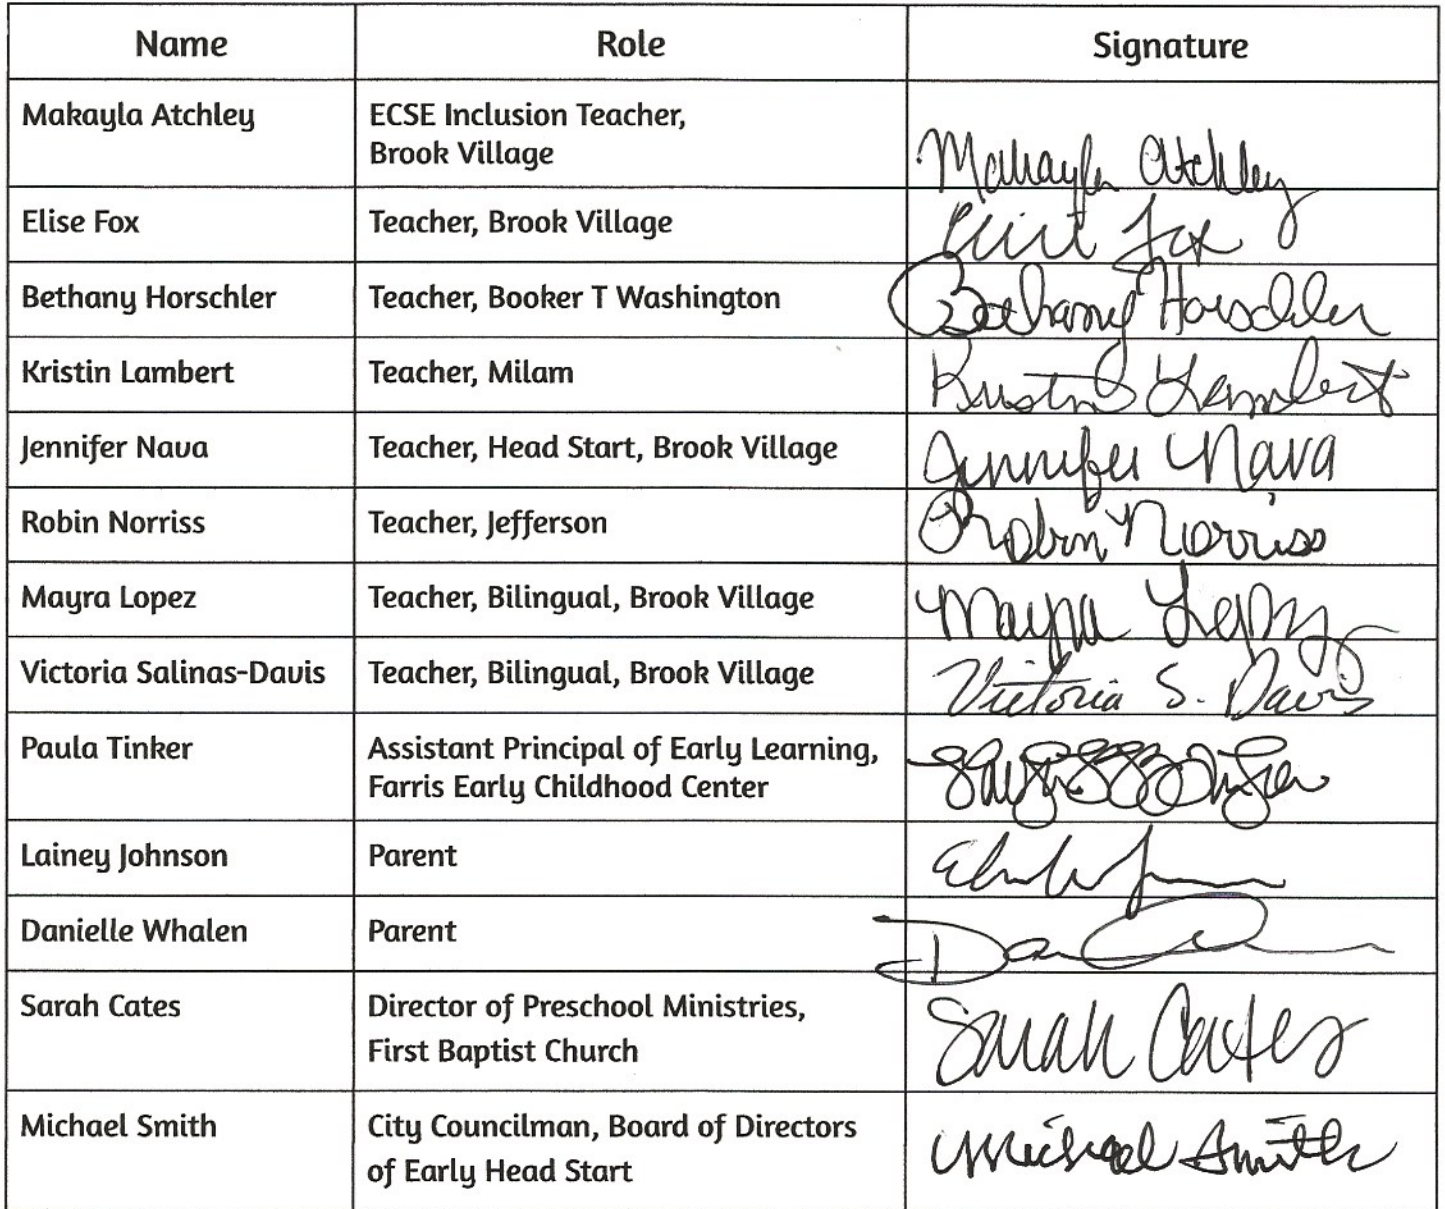 Name Role Signature
Makayla Atchley ECSE Inclusion Teacher,
Brook Village Makayla Atchley
Elise Fox Teacher, Brook Village Elise Fox
Bethany Horschler Teacher, Booker T Washington Bethany Horschler
Kristin Lambert Teacher, Milam Kristin Lambert
Jennifer Nava Teacher, Head Start, Brook Village Jennifer Nava
Robin Norriss Teacher, Jefferson Robin Norriss
Mayra Lopez Teacher, Bilingual, Brook Village Mayra Lopez
Victoria Salinas-Davis Teacher, Bilingual, Brook Village Victoria S. Davis
Paula Tinker Assistant Principal of Early Learning,
Farris Early Childhood Center
Lainey Johnson Parent
Danielle Whalen Parent
Sarah Cates Director of Preschool Ministries,
First Baptist Church Sarah Cates
Michael Smith City Councilman, Board of Directors
of Early Head Start Michael Smith